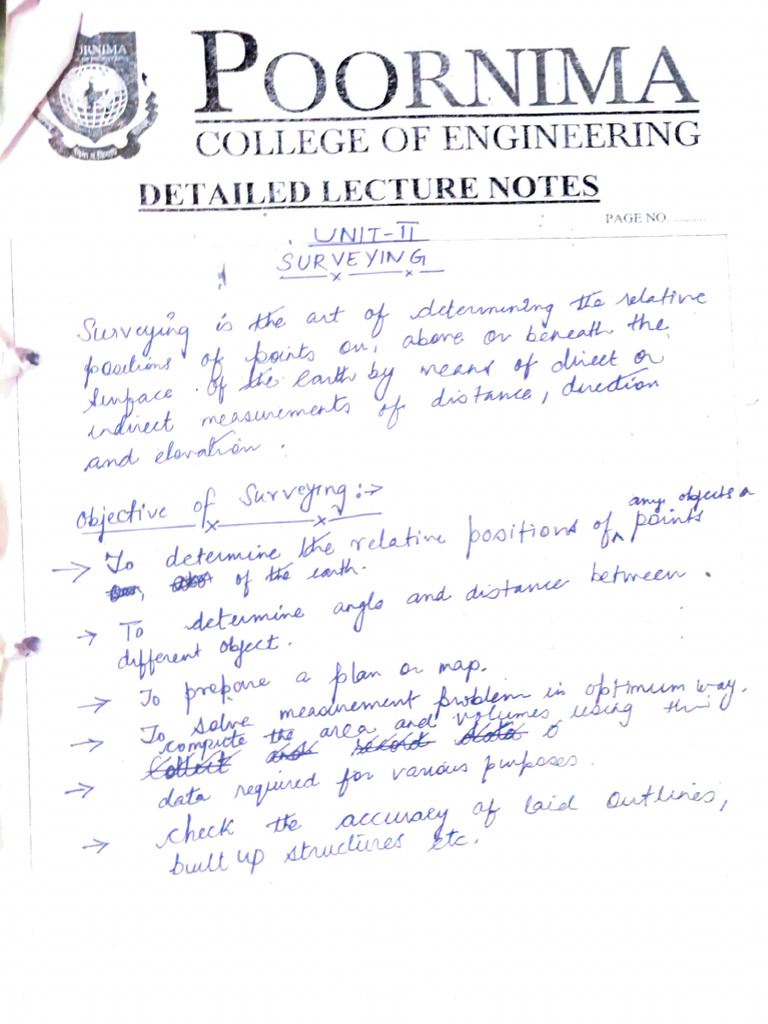 POORNIMA
COLLEGE OF ENGINEERING
DETAILED LECTURE NOTES
PAGE NO. ..........
UNIT-II
SURVEYING
Surveying is the art of determining the relative
positions of points on, above or beneath the
surface of the earth by means of direct or
indirect measurements of distance, direction
and elevation.
Objective of Surveying:→
any objects
→ To determine the relative positions of ^ points
of the earth.
→ To determine angle and distance between
different object.
→ To prepare a plan or map.
→ To solve measurement problem in optimum way.
→ compute the area and volumes using
Collect and record data
data required for various purposes.
→ check the accuracy of laid outlines,
built up structures etc.